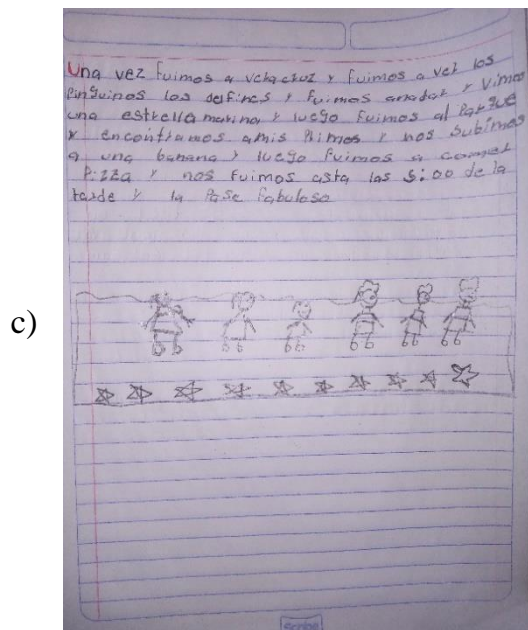 Una vez fuimos a veracruz y fuimos a ver los
Pinguinos los delfines y fuimos anadar y vimos
una estrella marina y luego fuimos al Parque
y encontramos amis Primos y nos subimos
a una banana y luego fuimos a comer
Pizza y nos fuimos asta las 5:00 de la
tarde y la Pase fabuloso
c)
Scribe